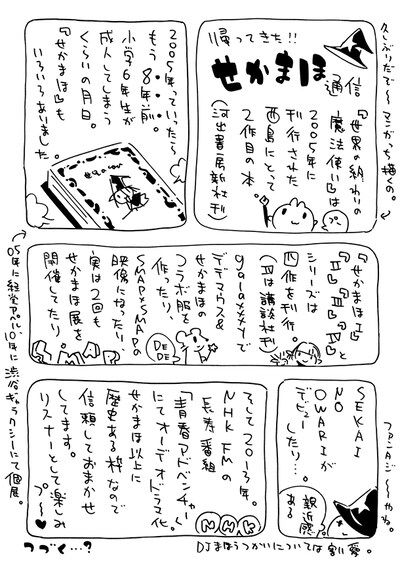 久しぶりだで〜〜マンガっち描くの。
帰ってきた!!
せかまほ
通信
『世界の終わりの
魔法使い』は
2005年に
刊行された
西島にとって
2作目の本。
(河出書房新社刊)
プ〜
2005年っていったら
もう8年前。
小学6年生が
成人してしまう
くらいの月日。
『せかまほ』も
いろいろありました。
『せかまほI』
『II』『III』『IV』と
シリーズは
四作を刊行。
(IIは講談社刊)
galaxxxyで
デデマウス&
せかまほの
コラボ服を
作ったり、
SMAP×SMAPの
映像になったり、
実は2回も
せかまほ展を
開催してたり。
DEDE
SMAP
05年に経堂アパレル、10年に渋谷ギャラクシーにて個展。
SEKAI
NO
OWARIが
デビュー
したり…。
親近感
ある
ファンタジ〜〜やね。
そして2013年。
NHK FMの
長寿番組
「青春アドベンチャー」
にてオーディオドラマ化。
せかまほ以上に
歴史ある枠なので
信頼しておまかせ
してます。
リスナーとして楽しみ
プ〜♥
NHK
つづく…?
DJまほうつかいについては割愛。